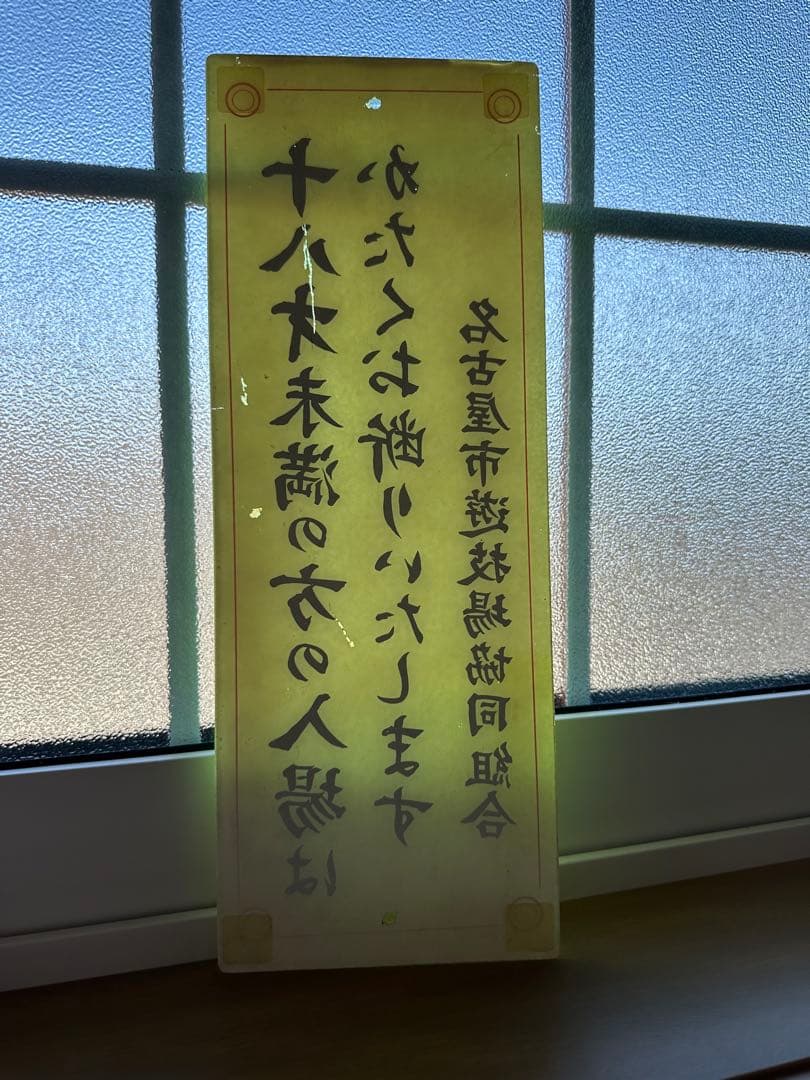 十八才未満の方の入場は
かたくお断りいたします
名古屋市遊技場協同組合